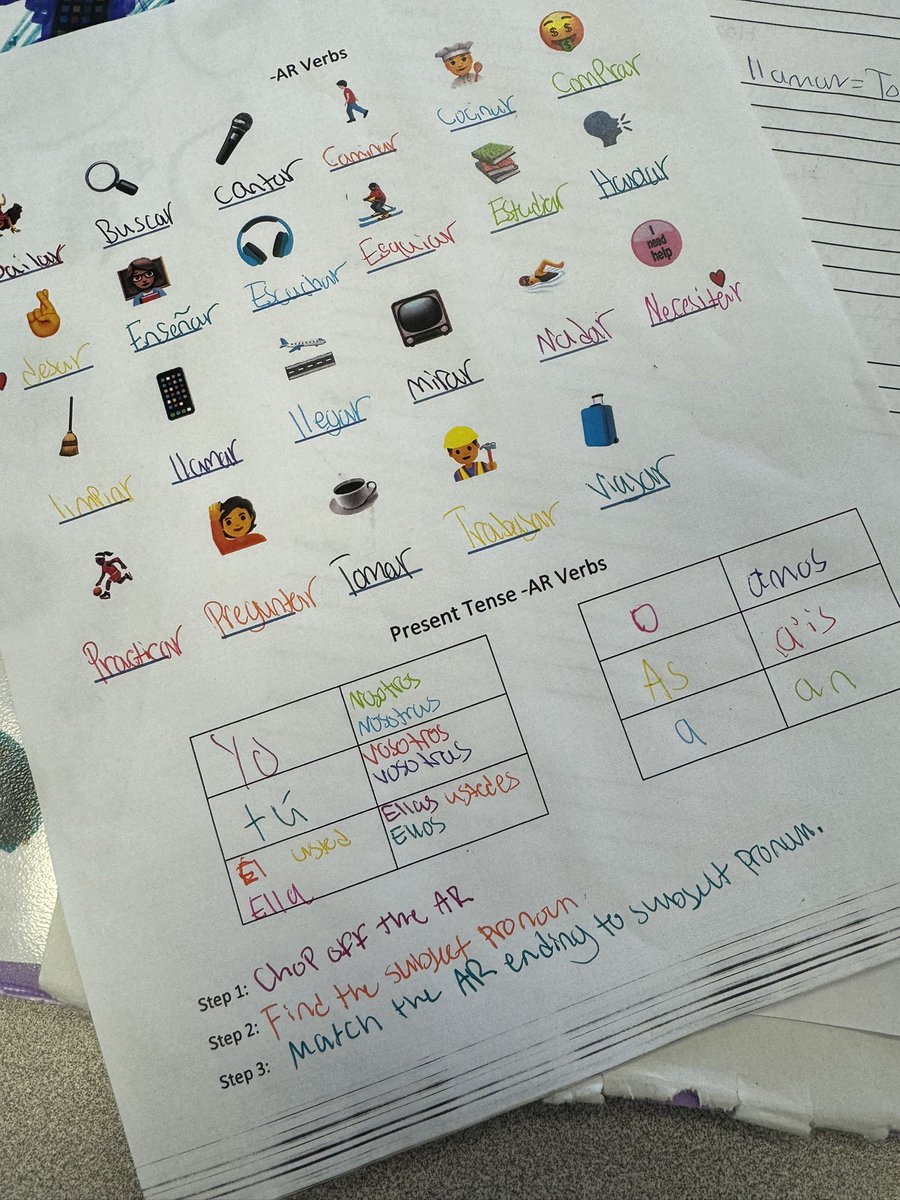 -AR Verbs
Bailar Buscar Cantar Caminar Cocinar Comprar
I need help
desear Enseñar Escuchar Esquiar Estudiar Hablar
limpiar llamar llegar mirar Nadar Necesitar
Practicar Preguntar Tomar Trabajar viajar
Present Tense -AR Verbs
Yo Nosotros
Nosotras
tú Vosotros
vosotras
Él usted Ellas ustedes
Ella Ellos
O amos
As áis
a an
Step 1: Chop off the AR
Step 2: Find the subject pronoun.
Step 3: Match the AR ending to subject pronoun.
llamar= To